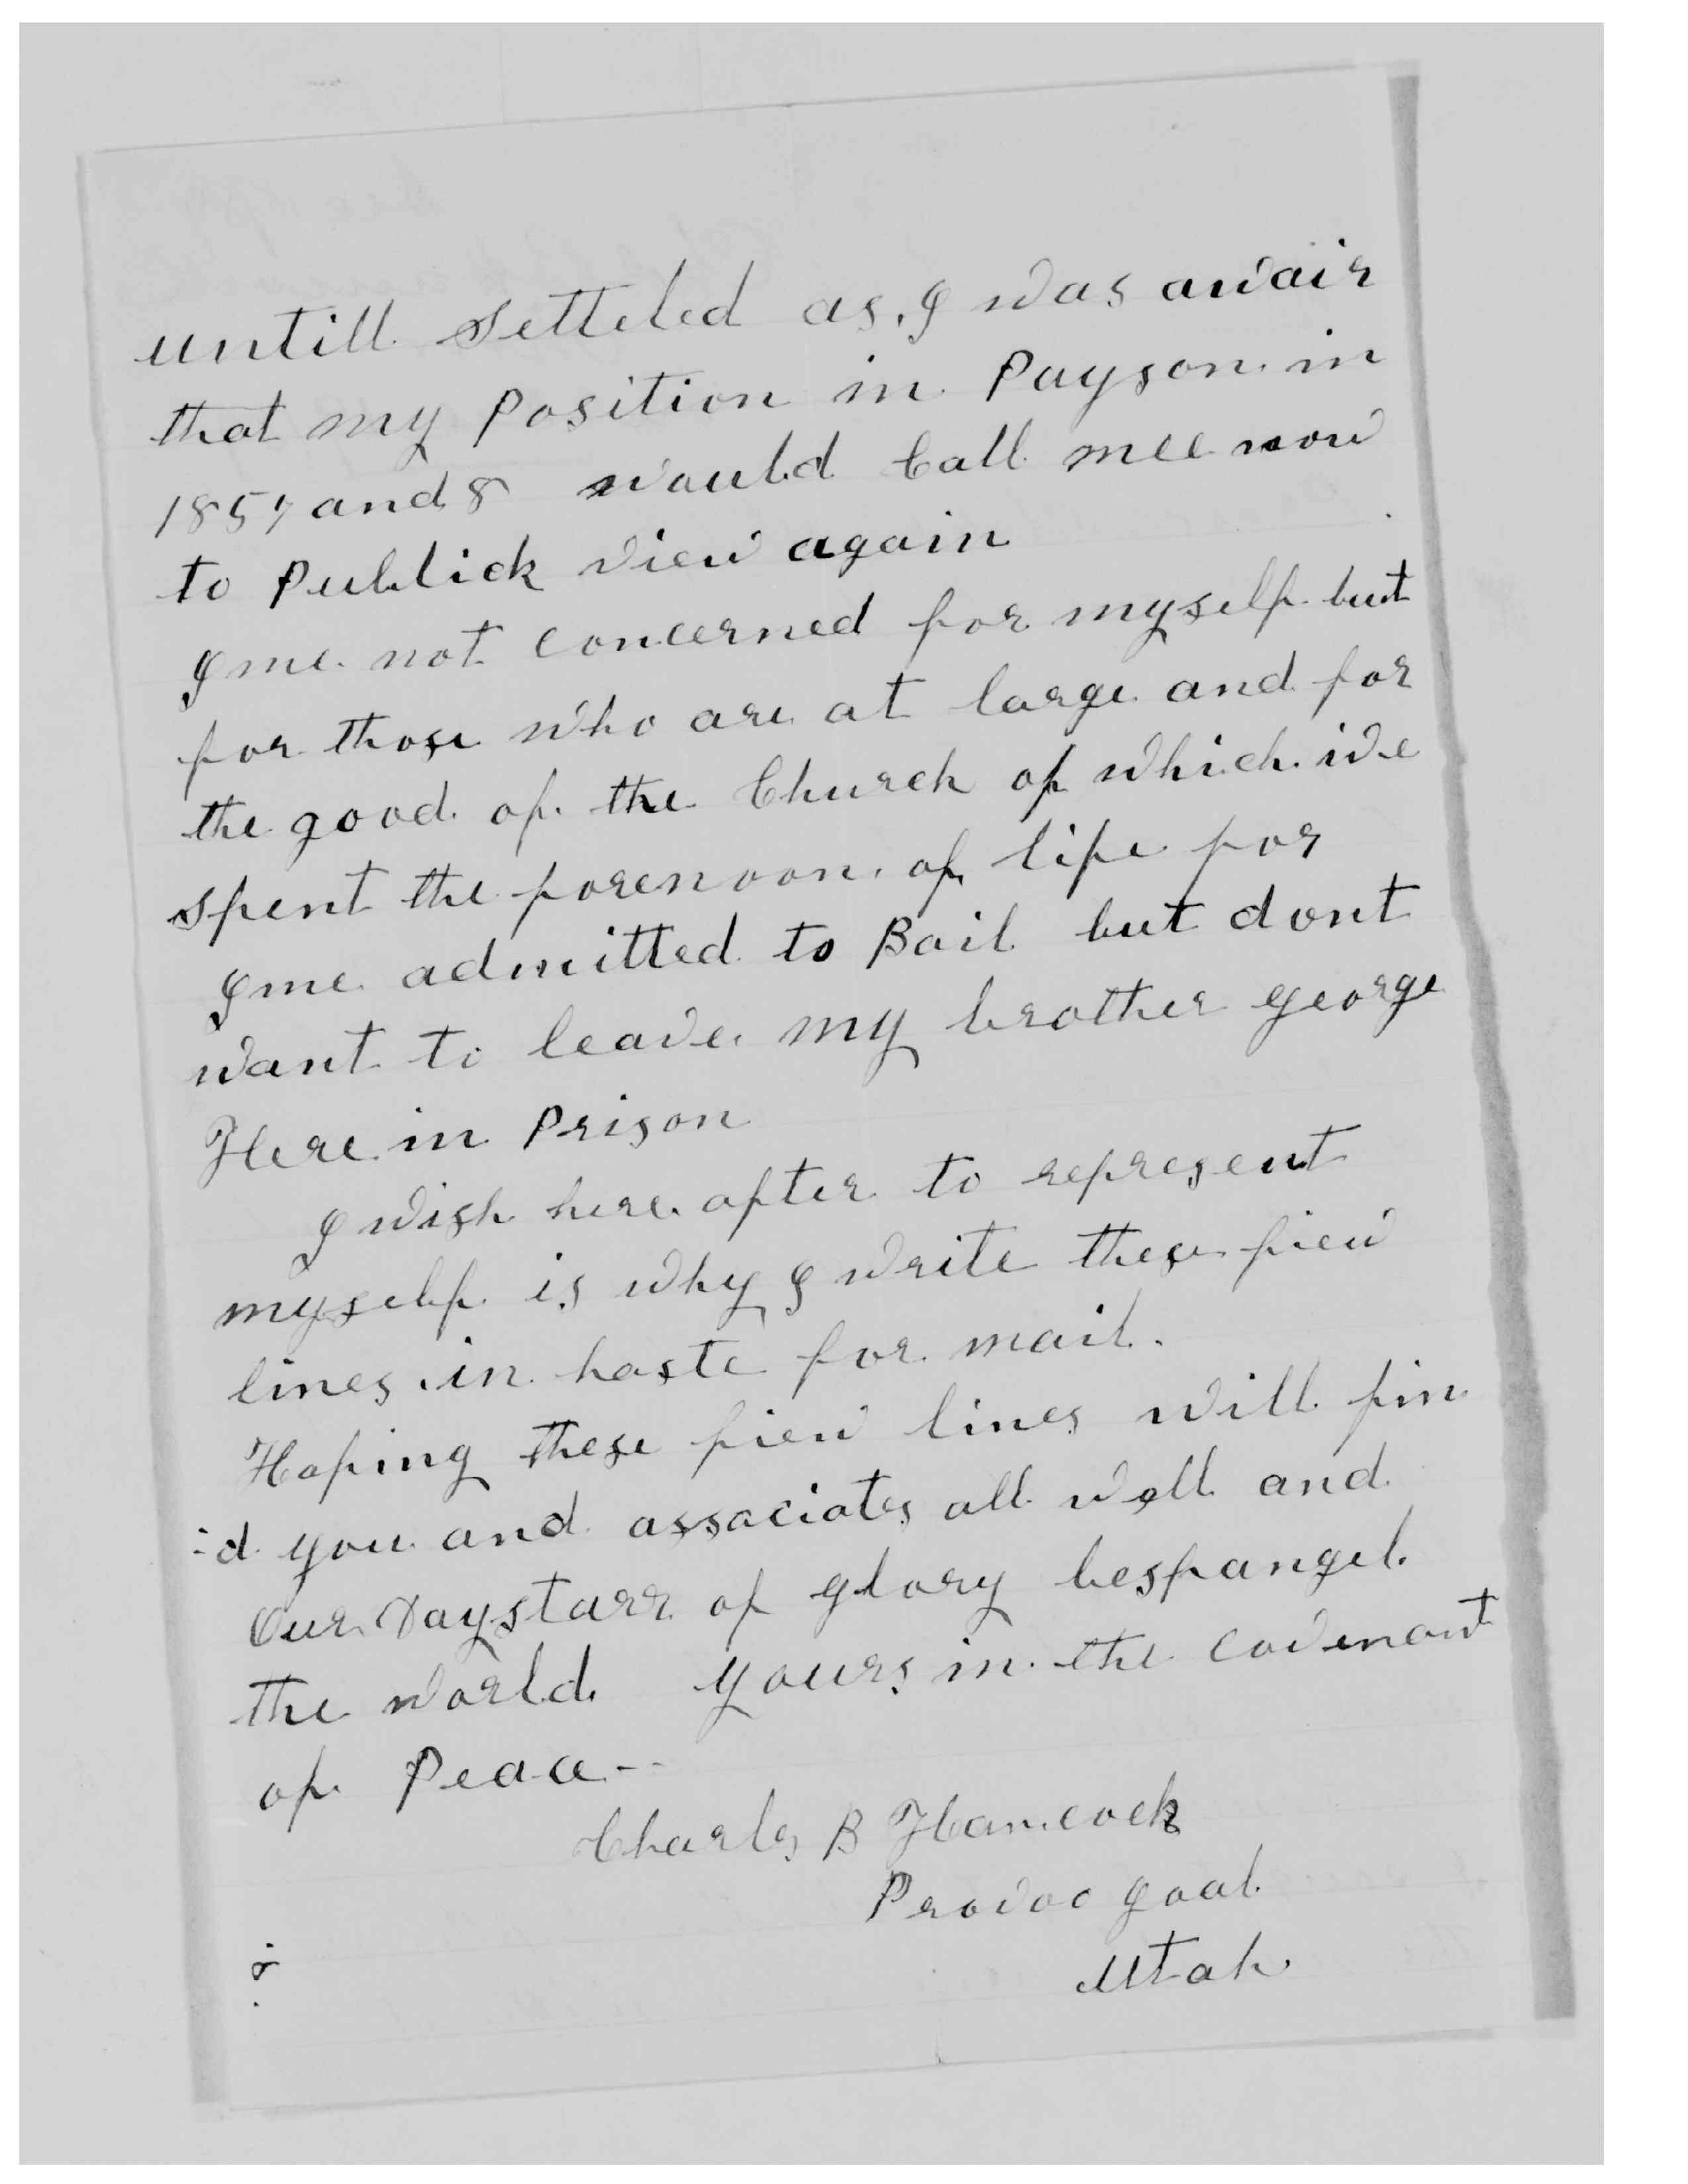 untill Setteled as I was awair
that my Position in Payson in
1857 and 8 would Call mee now
to Publick view again
Ime not concerned for myself but
for those who are at large and for
the good of the Church of which we
spent the forenoon of life for
Ime admitted to Bail but dont
want to leave my brother George
Here in Prison
I wish here after to represent
myself is why I write these fiew
lines in haste for mail.
Hoping these fiew lines will fin
=d you and associates all well and
Our Daystarr of glory bespangel
the world. yours in the covenant
of Peace--
Charles B Hancock
Provoo Goal
Utah